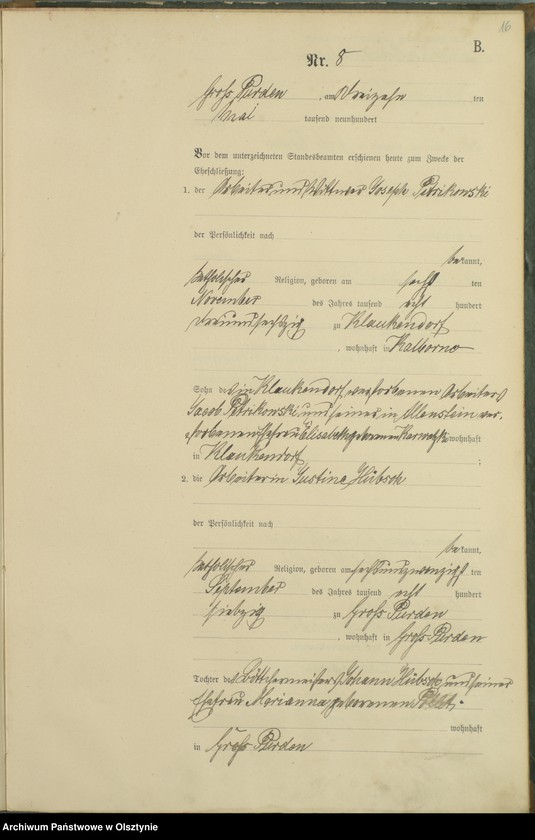 16
B.
Nr. 8
Gross Purden, am dreizehn ten
Mai tausend neunhundert
Vor dem unterzeichneten Standesbeamten erschienen heute zum Zwecke der
Eheschließung:
1. der Arbeiter und Wittwer Joseph Petrikowski
der Persönlichkeit nach
bekannt,
katholischer Religion, geboren am sechs ten
November des Jahres tausend acht hundert
dreiundsechzig zu Klaukendorf
, wohnhaft in Kalborno
Sohn des in Klaukendorf verstorbenen Arbeiters
Jacob Petrikowski und seiner in Allenstein ver-
storbenen Ehefrau Elisabeth geborenen wohnhaft
in Klaukendorf ;
2. die Arbeiterin Justina Hübsch
der Persönlichkeit nach
bekannt,
katholischer Religion, geboren am sechsundzwanzig ten
September des Jahres tausend acht hundert
siebzig zu Gross Purden
, wohnhaft in Gross Purden
Tochter des Böttchermeisters Johann Hübsch und seiner
Ehefrau Marianna geborenen
wohnhaft
in Gross Purden
Archiwum Państwowe w Olsztynie